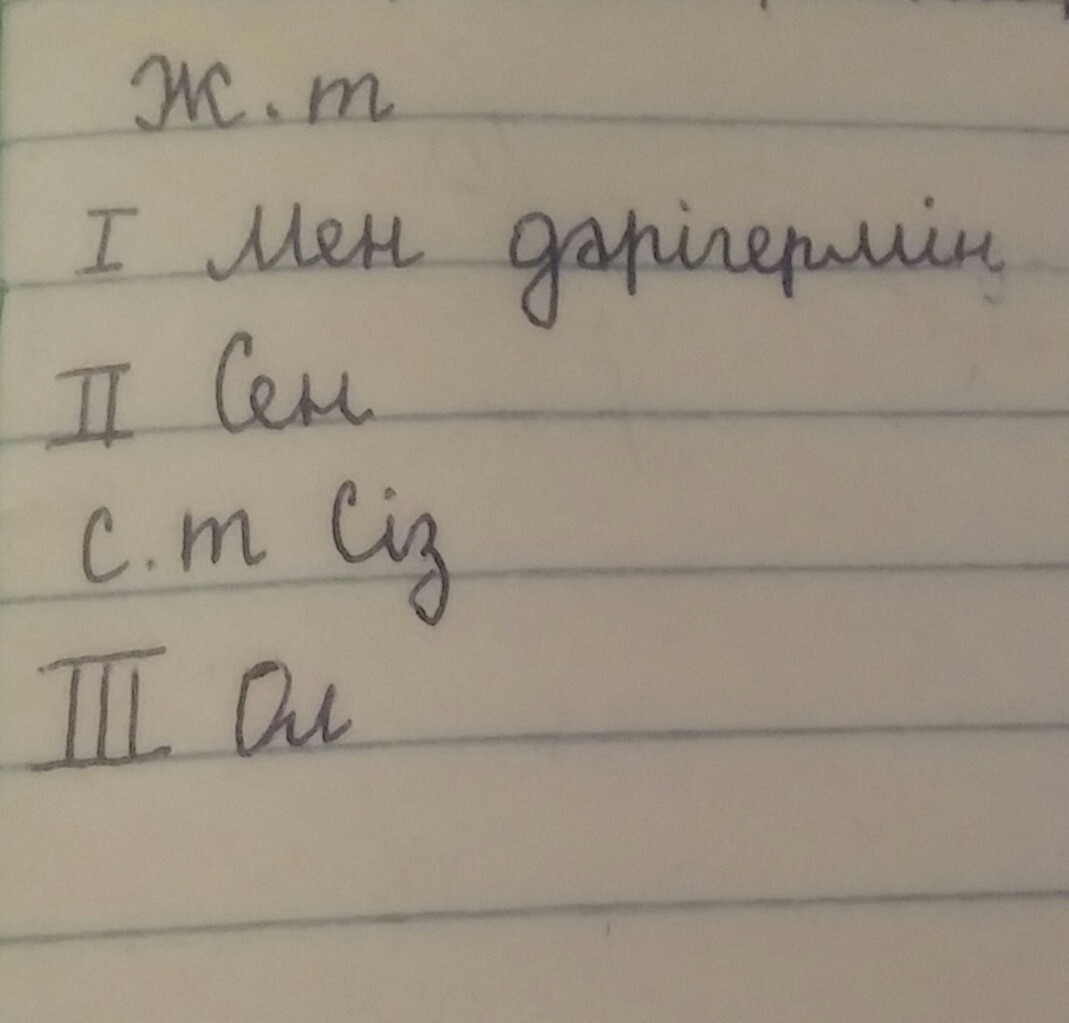 Ж. т
I Мен дәрігермін
II Сен
С. т Сіз
III Ол